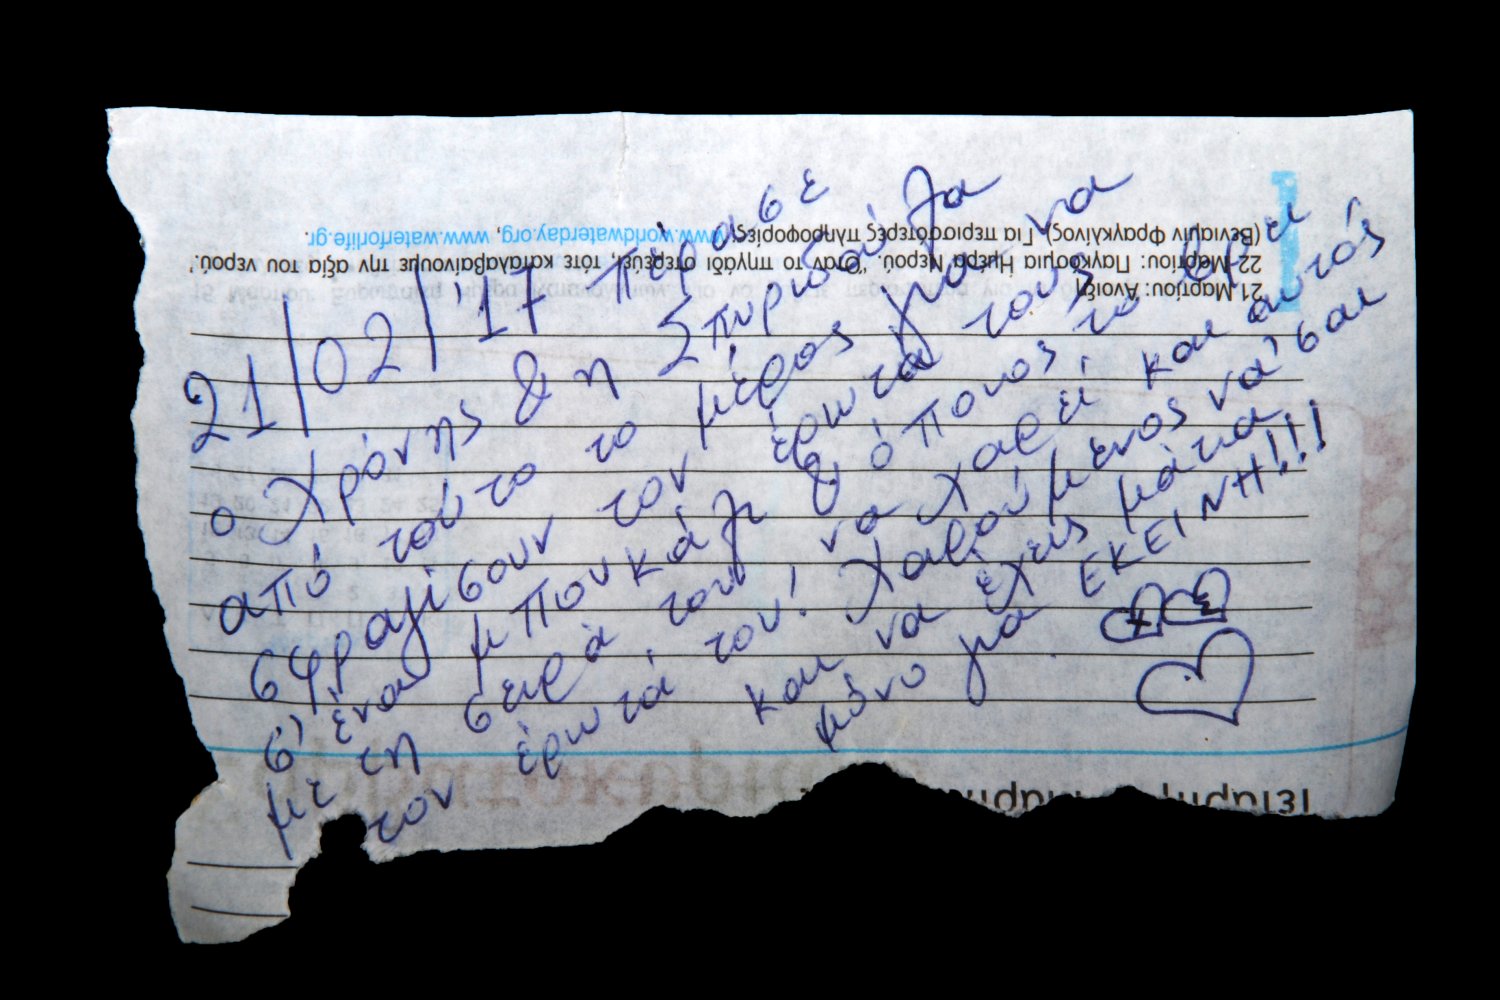 21/02/'17 πέρασε
ο Χρόνης & η Σπυριδούλα
από τούτο το μέρος για να
σφραγίσουν τον έρωτά τους
σ' ένα μπουκάλι & όποιος το βρει
με τη σειρά του να χαρεί και αυτός
τον έρωτά του! Χαρούμενος νά'σαι
και να έχεις μάτια
μόνο για ΕΚΕΙΝΗ!!!
Χ Σ
Τετάρτη
21 Μαρτίου: Άνοιξη.
22 Μαρτίου: Παγκόσμια Ημέρα Νερού. "Όταν το πηγάδι στερέψει, τότε καταλαβαίνουμε την αξία του νερού".
(Βενιαμίν Φραγκλίνος) Για περισσότερες πληροφορίες: www.worldwaterday.org, www.waterforlife.gr.